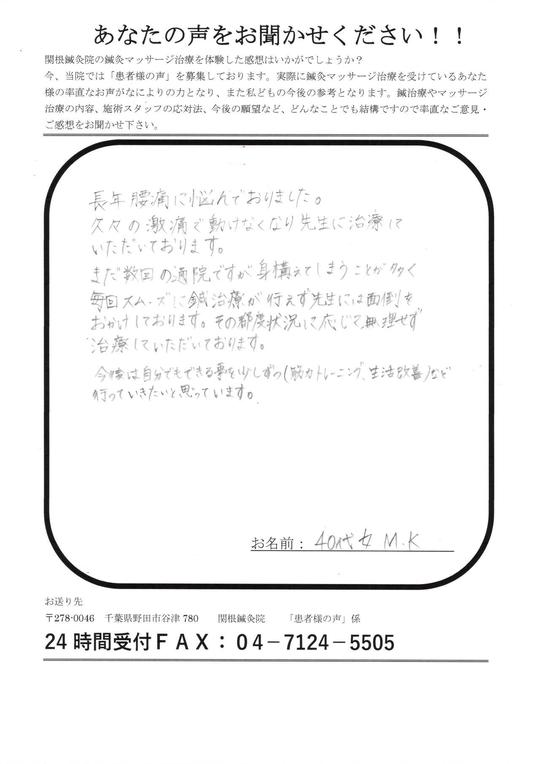 あなたの声をお聞かせください！！
関根鍼灸院の鍼灸マッサージ治療を体験した感想はいかがでしょうか？
今、当院では「患者様の声」を募集しております。実際に鍼灸マッサージ治療を受けているあなた
様の率直なお声がなによりの力となり、また私どもの今後の参考となります。鍼治療やマッサージ
治療の内容、施術スタッフの応対法、今後の願望など、どんなことでも結構ですので率直なご意見・
ご感想をお聞かせ下さい。
長年腰痛に悩んでおりました。
久々の激痛で動けなくなり先生に治療して
いただいております。
まだ数回の通院ですが身構えてしまうことが多く
毎回スムーズに鍼治療が行えず先生には面倒を
おかけしております。その都度状況に応じて無理せず
治療していただいております。
今後は自分でもできる事を少しずつ(筋力トレーニング、生活改善)など
行っていきたいと思っています。
お名前： 40代女 M.K
お送り先
〒278-0046 千葉県野田市谷津780 関根鍼灸院 「患者様の声」係
24時間受付ＦＡＸ：０４－7124－5505